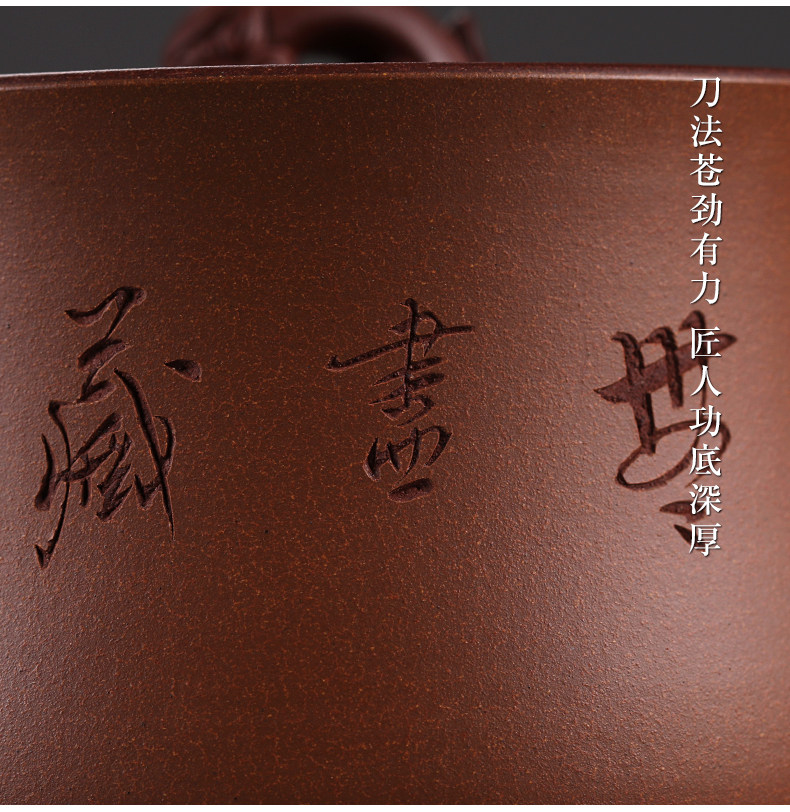 刀法苍劲有力 匠人功底深厚
無盡藏